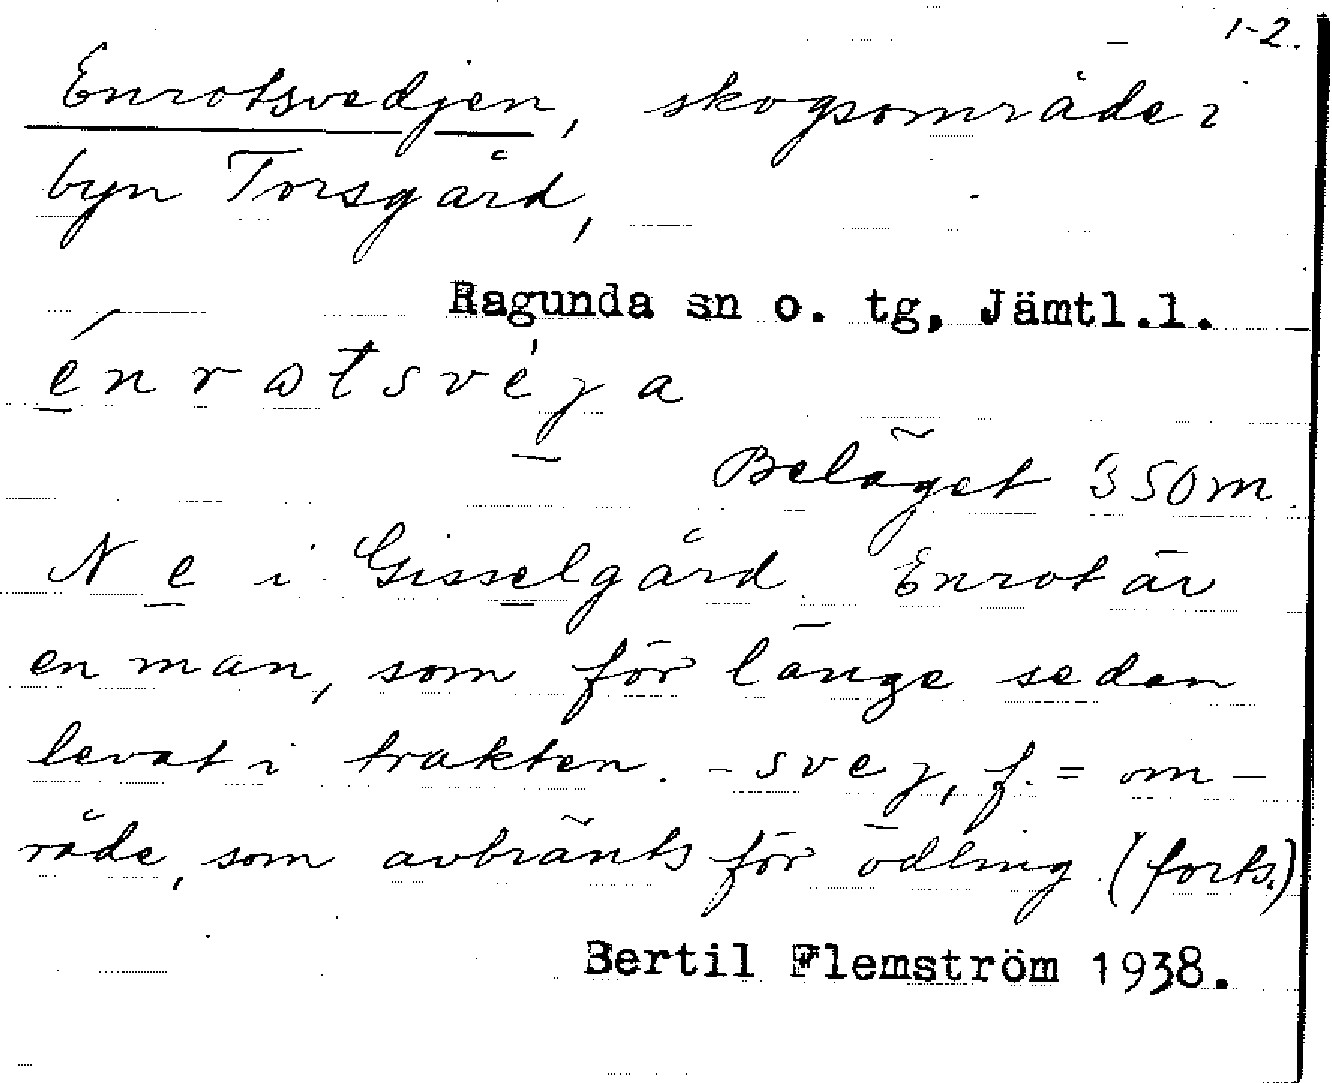 1-2.
Enrotsvedjen, skogsområde i
byn Torsgård,
Ragunda sn o. tg, Jämtl.l.
énrotsvéja
Beläget 350m.
N e i Gisselgård. Enrot är
en man, som för länge sedan
levat i trakten. -svej, f. = om-
råde, som avbränts för odling (forts.)
Bertil Flemström 1938.